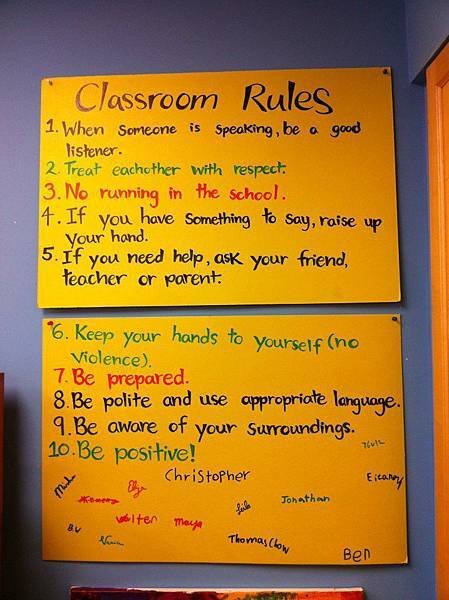 Classroom Rules
1. When someone is speaking, be a good
listener.
2. Treat eachother with respect.
3. No running in the school.
4. If you have something to say, raise up
your hand.
5. If you need help, ask your friend,
teacher or parent.
6. Keep your hands to yourself (no
violence).
7. Be prepared.
8. Be polite and use appropriate language.
9. Be aware of your surroundings.
10. Be positive!
Christopher
Jonathan
Walter maya
Thomas Chow
Ben